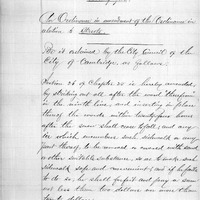 An Ordinance in amendment of the Ordinance in
relation to Streets.
Be it ordained by the City Council of the
City of Cambridge, as follows:
Section 26 of Chapter 20 is hereby amended
by striking out all after the word therefrom
in the ninth line, and inserting in place
thereof the words within twenty four hours
after the snow shall cease to fall; and any
ice which encumbers such sidewalk or any
part thereof, to be covered or strewed with sand
or other suitable substance, so as to make such
sidewalk safe and convenient; and if he fails
to do so he shall forfeit and pay a sum
not less than two dollars nor more than
dollars